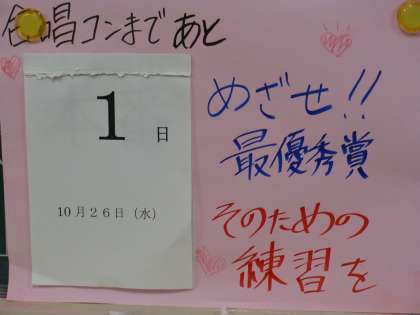 合唱コンまであと
1日
10月26日（水）
めざせ!!
最優秀賞
そのための
練習を